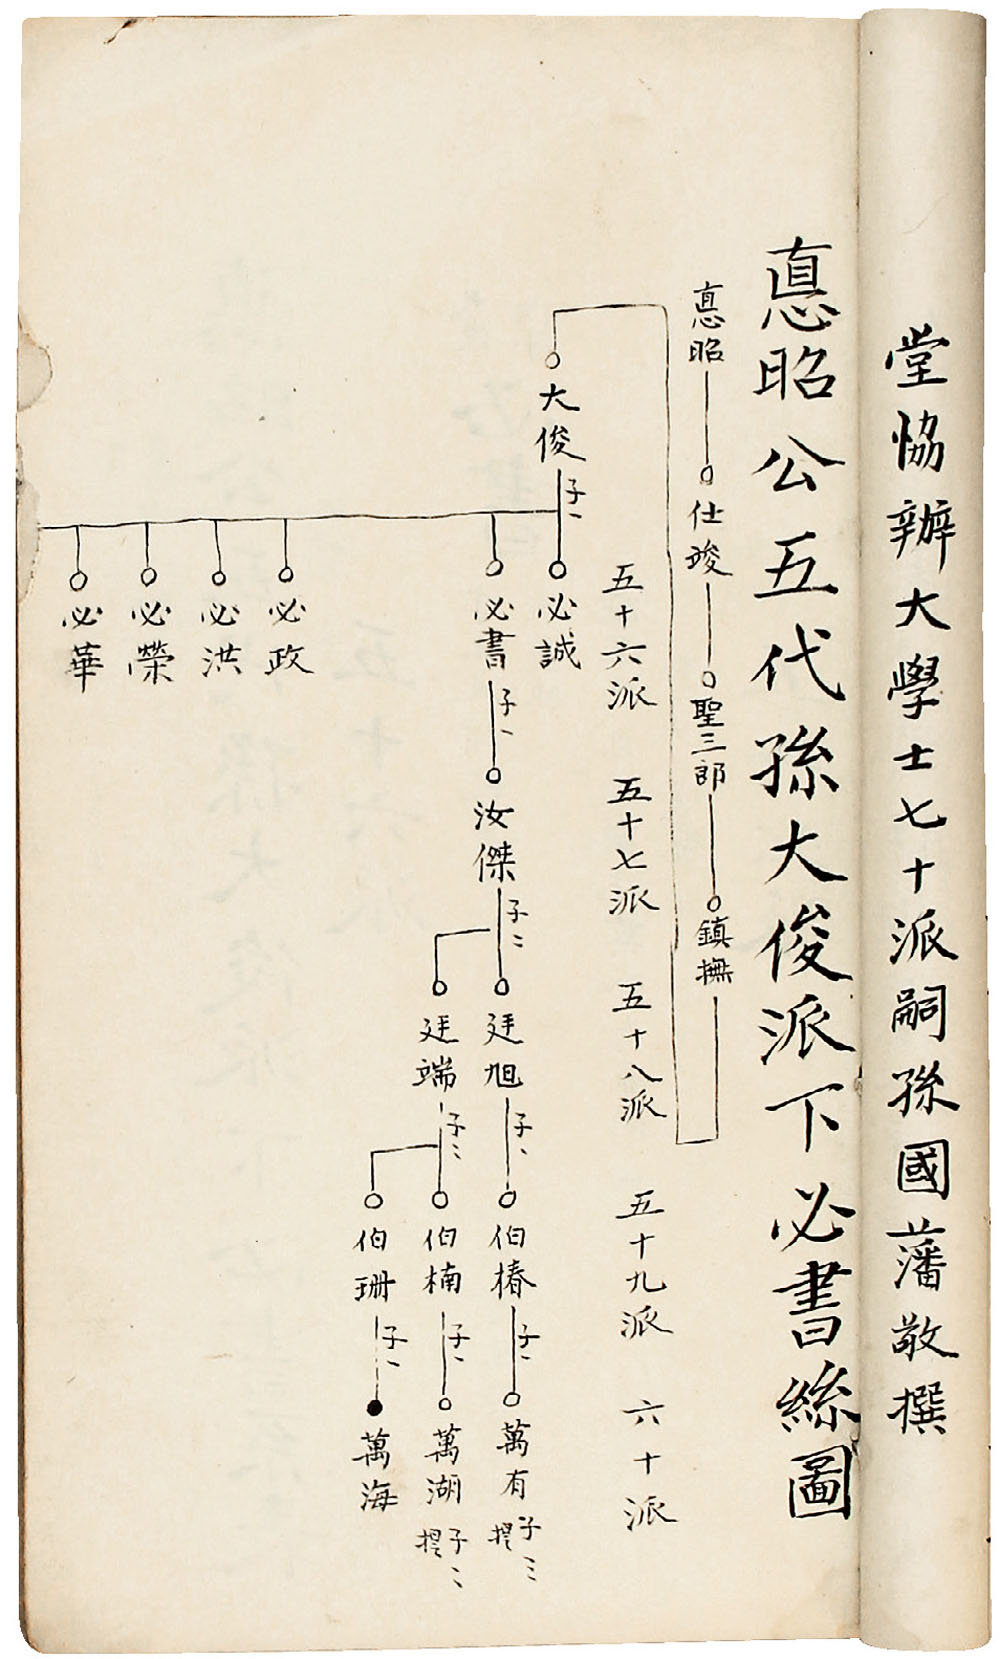 堂恊辦大學士七十派嗣孫國藩敬撰
悳昭公五代孫大俊派下必書絲圖
悳昭 仕竣 聖三郎 鎮撫
五十六派 五十七派 五十八派 五十九派 六十派
大俊 子一 必誠
必書 子一 汝傑 子二 廷旭 子一 伯椿 子一 萬有 子三 提
廷端 子二 伯楠 子一 萬湖 子二 提
伯珊 子一 萬海
必政
必洪
必榮
必華